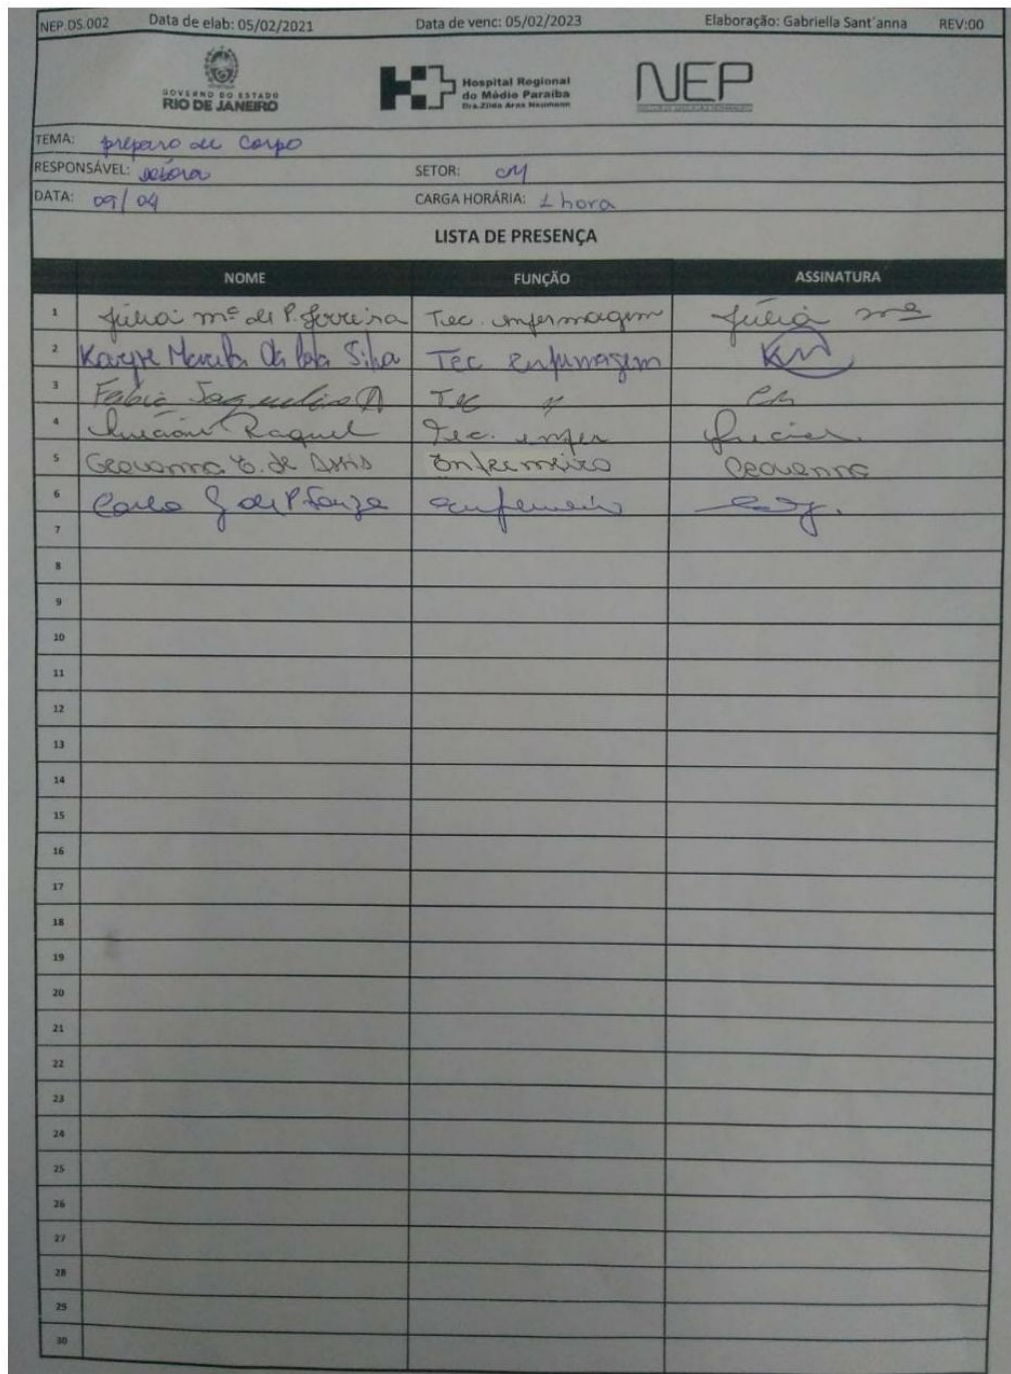 NEP.DS.002 Data de elab: 05/02/2021 Data de venc: 05/02/2023 Elaboração: Gabriella Sant´anna REV:00
GOVERNO DO ESTADO
RIO DE JANEIRO
Hospital Regional
do Médio Paraíba
Dra.Zilda Arns Neumann
NEP
TEMA: preparo de corpo
RESPONSÁVEL: Debora SETOR: CM
DATA: 09/04 CARGA HORÁRIA: 1 hora
LISTA DE PRESENÇA
NOME FUNÇÃO ASSINATURA
1 Júlia Mª de P. Ferreira Tec. enfermagem Júlia Mª
2 Silva Tec enfermagem KM
3 Tec "
4 Raquel Tec. enfer
5 Geovanna de Assis Enfermeiro Geovanna
6 de P Souza enfermeiro
7
8
9
10
11
12
13
14
15
16
17
18
19
20
21
22
23
24
25
26
27
28
29
30